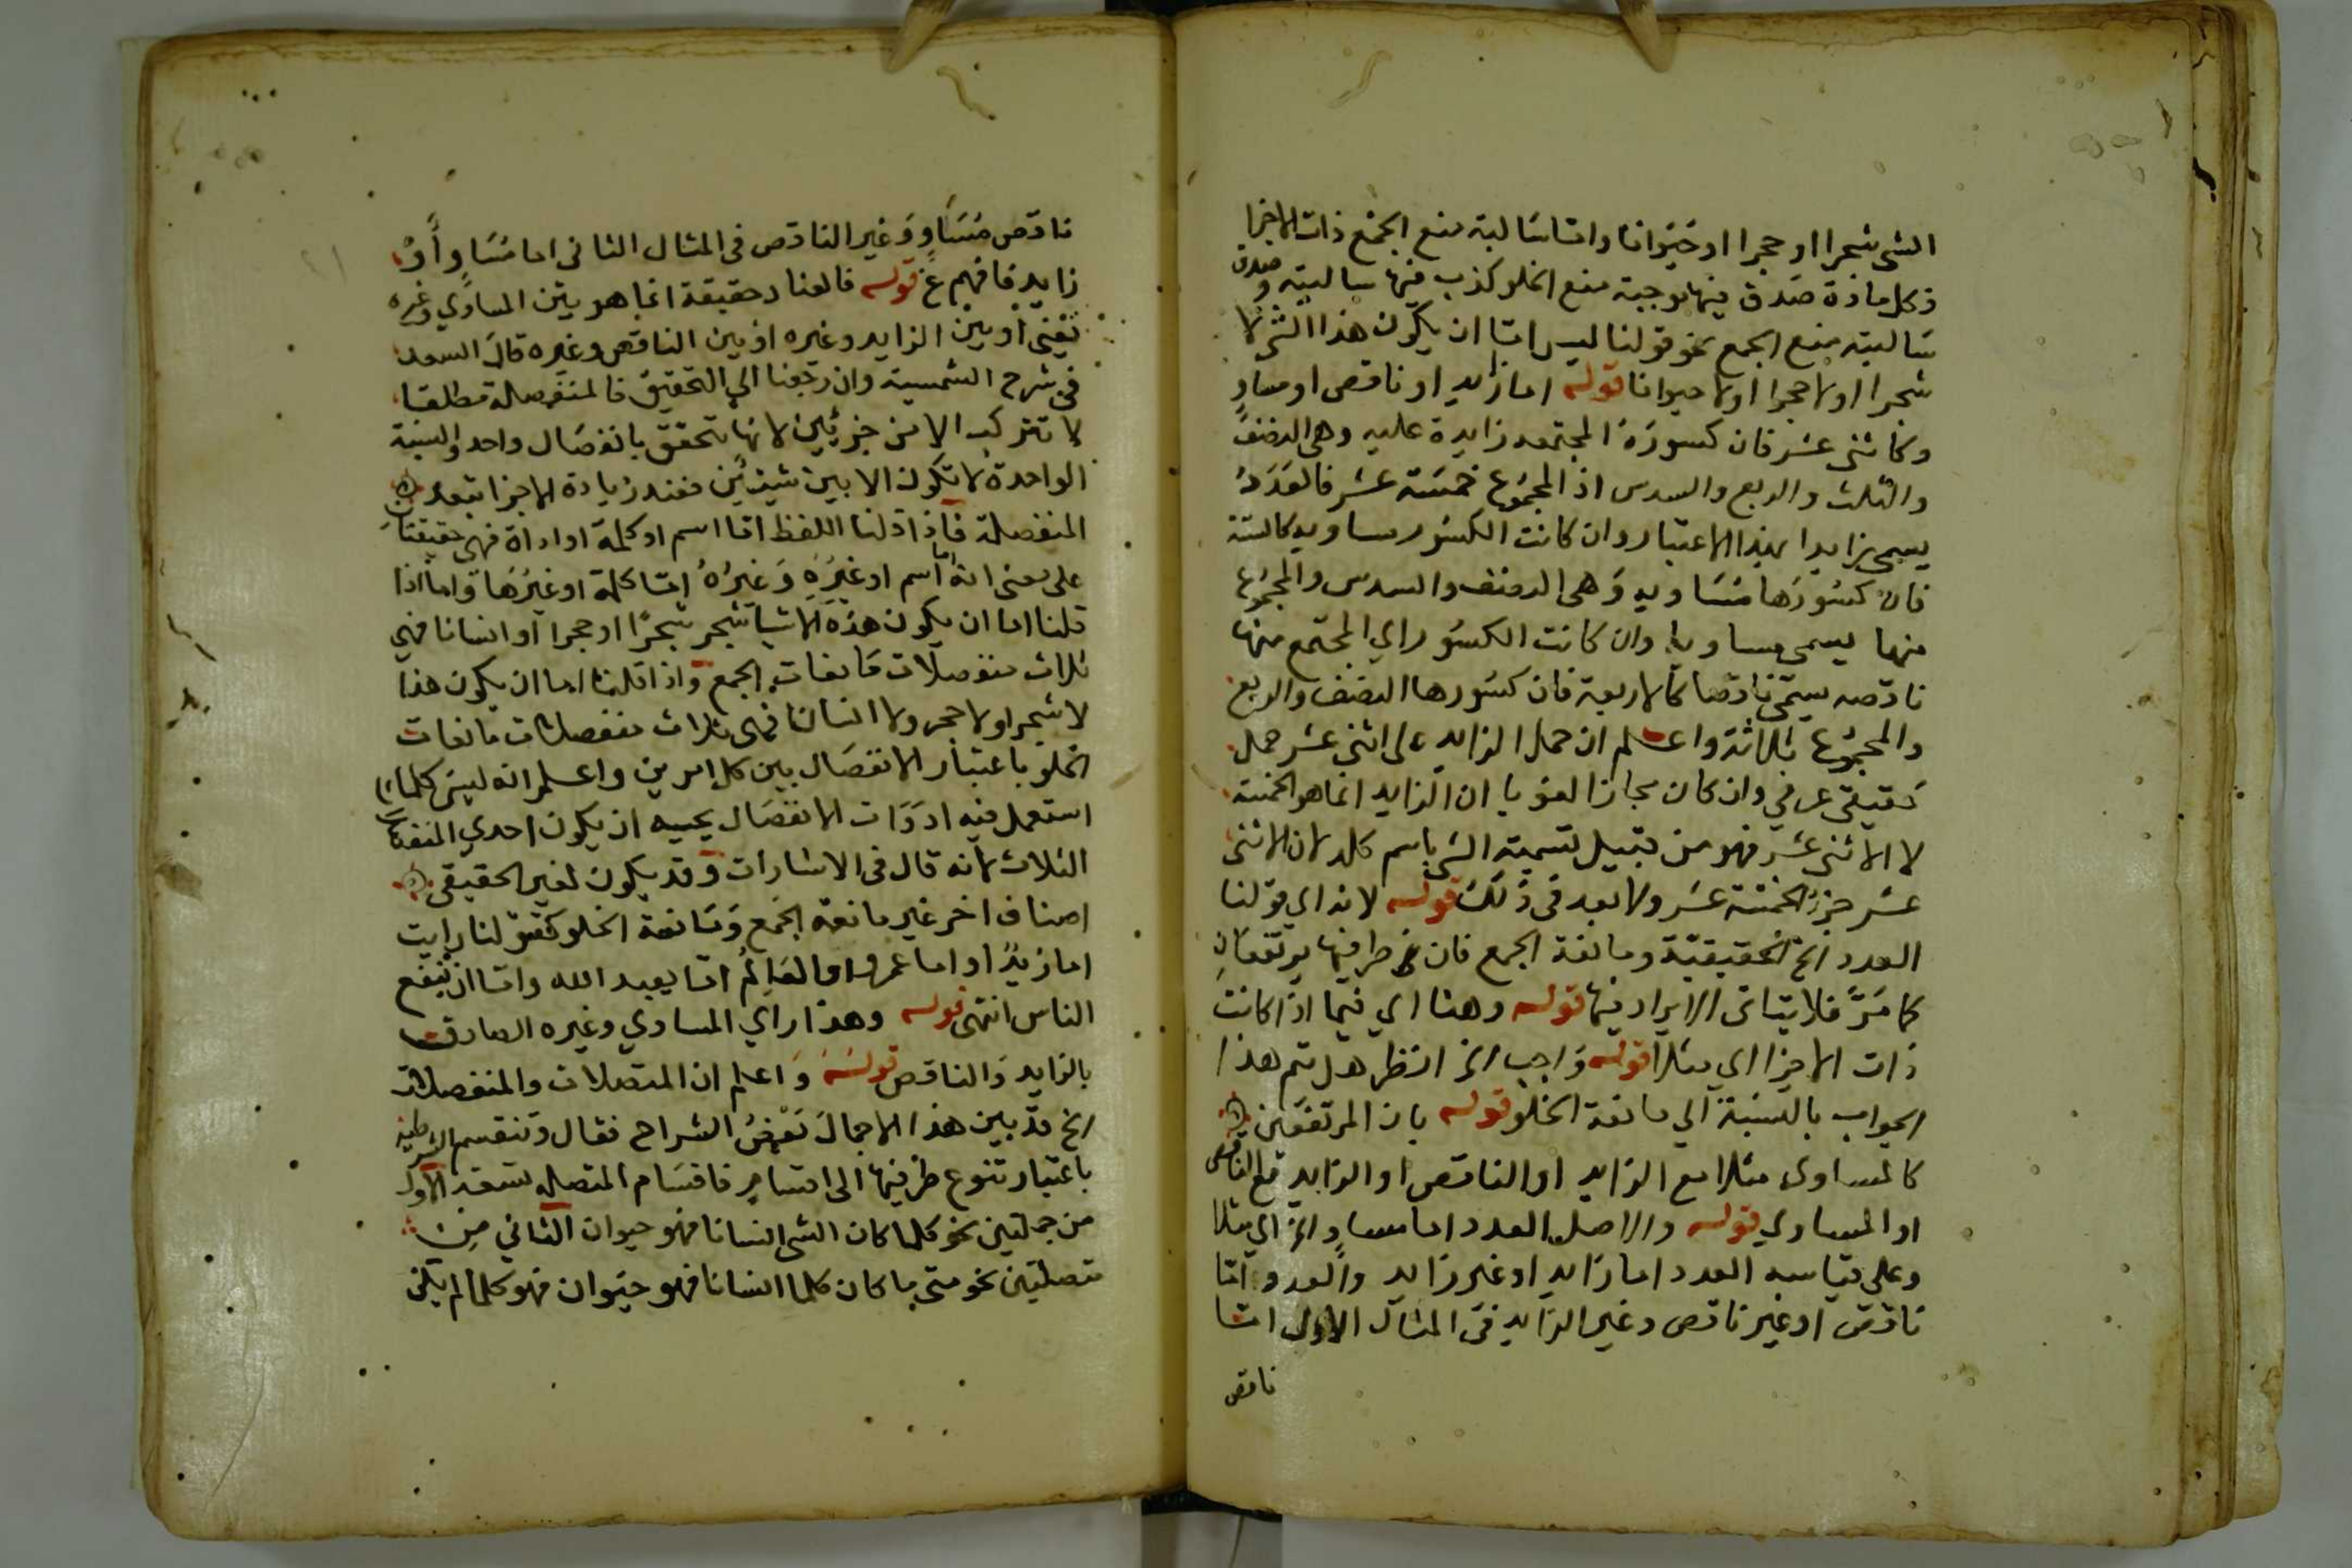 الشى شجرا او حجرا او حَيَوانا واما سَالبة منع الجمْع ذات الاجزا
فكل مادة صَدق فيها موجبة منع الخلو كذب فيها سالبته وصدق
سَالبة منع الجمع نحو قولنا ليس اما ان يكون هذا الشى لا
شجرا او لا حجرا او لا حيوانا قوله اما زايد او ناقص او مساوٍ
وكاثنى عشر فان كسورَهُ المجتمعه زايدة عليه وهى النصف
والثلث والربع والسدس اذ المجمُوع خمسَة عشر فالعَدَدُ
يسمى زايدا بهذا الاعتبار وان كانت الكسُور مساويه كالستة
فان كسُورَهَا مُسَاويه وَهى النصف والثلث والسدس والمجموع
منها يسمى مساويا وان كانت الكسُور اي المجتمع منها
ناقصه سمّى ناقصا كالاربعة فان كسُورها النصف والربع
والمجمُوع ثلاثة واعلم ان حمل الزايد على اثنى عشر حمل
حَقيقي عرفي وان كان مجازا لغويا ان الزايد انما هو الخمسة
لا الاثنى عشر فهو من قبيل تسمية الشى باسم كله لان الاثنى
عشر جزؤ الخمسة عشر ولا بعد فى ذلك قوله لانه اي قولنا
العدد الخ الحقيقيّة ومانعة الجمع فان طرفيها يرتفعَانِ
كما مَرَّ فلا يتاتى الايراد فيها قوله وهنا اي فيما اذا كانت
ذات الاجزا اي مثلا قوله وَاجيب الخ انظر هل يتم هذا
الجواب بالنسبَة الي مانعة الخلو قوله بان المرتفعَين
كالمساوى مثلا مع الزايد او الناقص او الزايد مع الناقص
او المساوي قوله والاصل العدد اما مساوٍ الخ اي مثلا
وعلى قياسه العدد اما زايد او غير زايد والعدد اما
ناقص او غير ناقص وغير الزايد فى المثال الاول اما
ناقص
ناقص مُسَاوٍ وَغير الناقص فى المثال الثانى اما مُسَاوٍ أَوْ
زايد فافهم قوله فالعناد حقيقة انما هو بيْن المساوي وغيره
يَعْنى أو بين الزايد وغيره او بين الناقص وغيره قال السعد
فى شرح الشمسية وان رجعنا الي التحقيق فالمنفصله مطلقا
لا تتركب الا من جزئين لانها تتحقق بانفصَال واحد والنسبة
الواحدة لا تكون الا بين شيئين فعند زيادة الاجزا تتعدد
المنفصلة فاذا قلنا اللفظ اما اسم او كلمة او اداة فهى حقيقتان
على معنى انه اما اسم او غيرُه وَغيرُهُ امّا كلمة او غيرُهَا وَاما اذا
قلنا اما ان يكون هذه الاشيا شجر شجرًا او حجرا او انسانا فهى
ثلاث منفصلات مَانعات الجمع واذا قلنا اما ان يكون هذا
لا شجرا ولا حجر ولا انسانا فهى ثلاث منفصلات مانعات
الخلو باعتبار الانفصَال بين كل امرين واعلم انه ليس كلما
استعمل فيه ادَوَات الانفصَال يجب ان يكون احدي المنفصلات
الثلاث لانه قال فى الاشارات وقد يكون لغير الحقيقى
اصناف اخر غير مانعة الجمع وَمَانعة الخلو كقولنا رايت
اما زيدًا او اما عمرو او العَالِمُ اما يعبد الله واما ان ينفع
الناس انتهى قوله وهذا راي المساوي وغيره الصادق
بالزايد وَالناقص قوله وَاعلم ان المتصلات والمنفصلات
الخ قد بين هذا الاجمالَ بَعْضُ الشراح فقال وتنقسم الشرطية
باعتبار تنوع طرفيها الى اقسامٍ فاقسَام المتصله تسعة الاول
من حمليتين نحو كلما كان الشى انسانا فهو حيوان الثاني مِن
متصلتين نحو متى ما كان كلما انسانا فهو حيَوان فهو كلما لم يكن